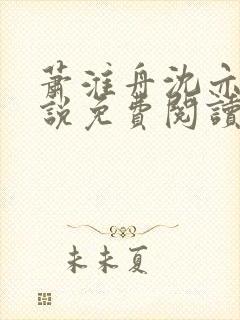 蕭淮舟沈亦
說免費閱讀
未未夏